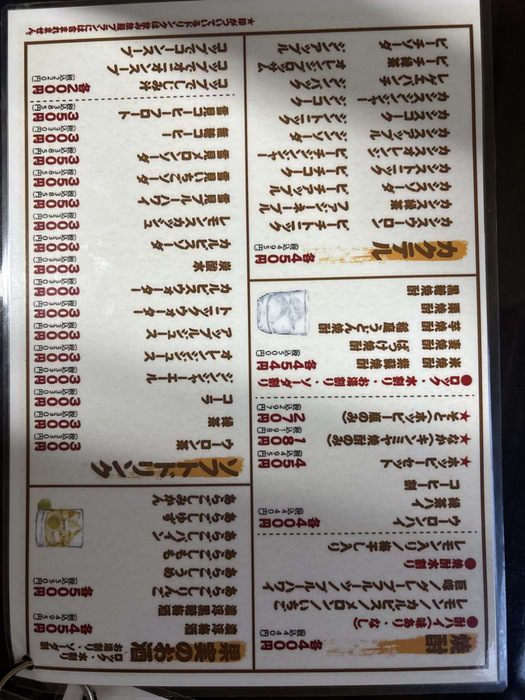 焼酎 各400円 (税込440円)
●酎ハイ(味あり・なし)
レモン/カルピス/メロン/いちご
巨峰/グレープフルーツ/ブルーハワイ
●焼酎水割り
レモン入り/梅干し入り
ウーロンハイ 各400円 (税込440円)
緑茶ハイ
コーヒー割
★ホッピーセット 450円 (税込495円)
★なか(キンミヤ焼酎のみ) 180円 (税込198円)
★そと(ホッピー瓶のみ) 270円 (税込297円)
●ロック・水割り・お湯割り・ソーダ割り
米焼酎 紫蘇焼酎 各454円 (税込500円)
麦焼酎 ばっけ焼酎
芋焼酎 稲庭うどん焼酎
栗焼酎
黒糖焼酎
カクテル 各450円 (税込495円)
カシスウーロン ピーチトニック
カシス緑茶 ファジーネーブル
カシスソーダ ピーチアップル
カシストニック ピーチコーク
カシスオレンジ ピーチジンジャー
カシスアップル ジンソーダ
カシスコーク ジントニック
カシスジンジャー ジンコーク
レゲエパンチ ジンバック
ピーチ緑茶 オレンジブロッサム
ピーチソーダ ジンアップル
果実のお酒 ロック・水割り
お湯割り・ソーダ割
濃厚梅酒 各450円 (税込495円)
濃厚黒糖梅酒
あらごしりんご 各500円 (税込550円)
あらごしうめ
あらごしもも
あらごしパイン
あらごしゆず
あらごしみかん
ソフトドリンク
ウーロン茶 300円 (税込330円)
緑茶 300円 (税込330円)
コーラ 300円 (税込330円)
ジンジャーエール 300円 (税込330円)
オレンジジュース 300円 (税込330円)
アップルジュース 300円 (税込330円)
トニックウォーター 300円 (税込330円)
カルピスウォーター 300円 (税込330円)
炭酸水 300円 (税込330円)
カルピスソーダ 300円 (税込330円)
レモンスカッシュ 300円 (税込330円)
雪見ブルーハワイ 350円 (税込385円)
雪見いちごソーダ 350円 (税込385円)
雪見メロンソーダ 350円 (税込385円)
無糖コーヒー 300円 (税込330円)
雪見コーヒーフロート 350円 (税込385円)
コップでしじみ汁 各200円 (税込220円)
コップでオニオンスープ
コップでコーンスープ
★印がついているドリンクは飲み放題プランには含まれません